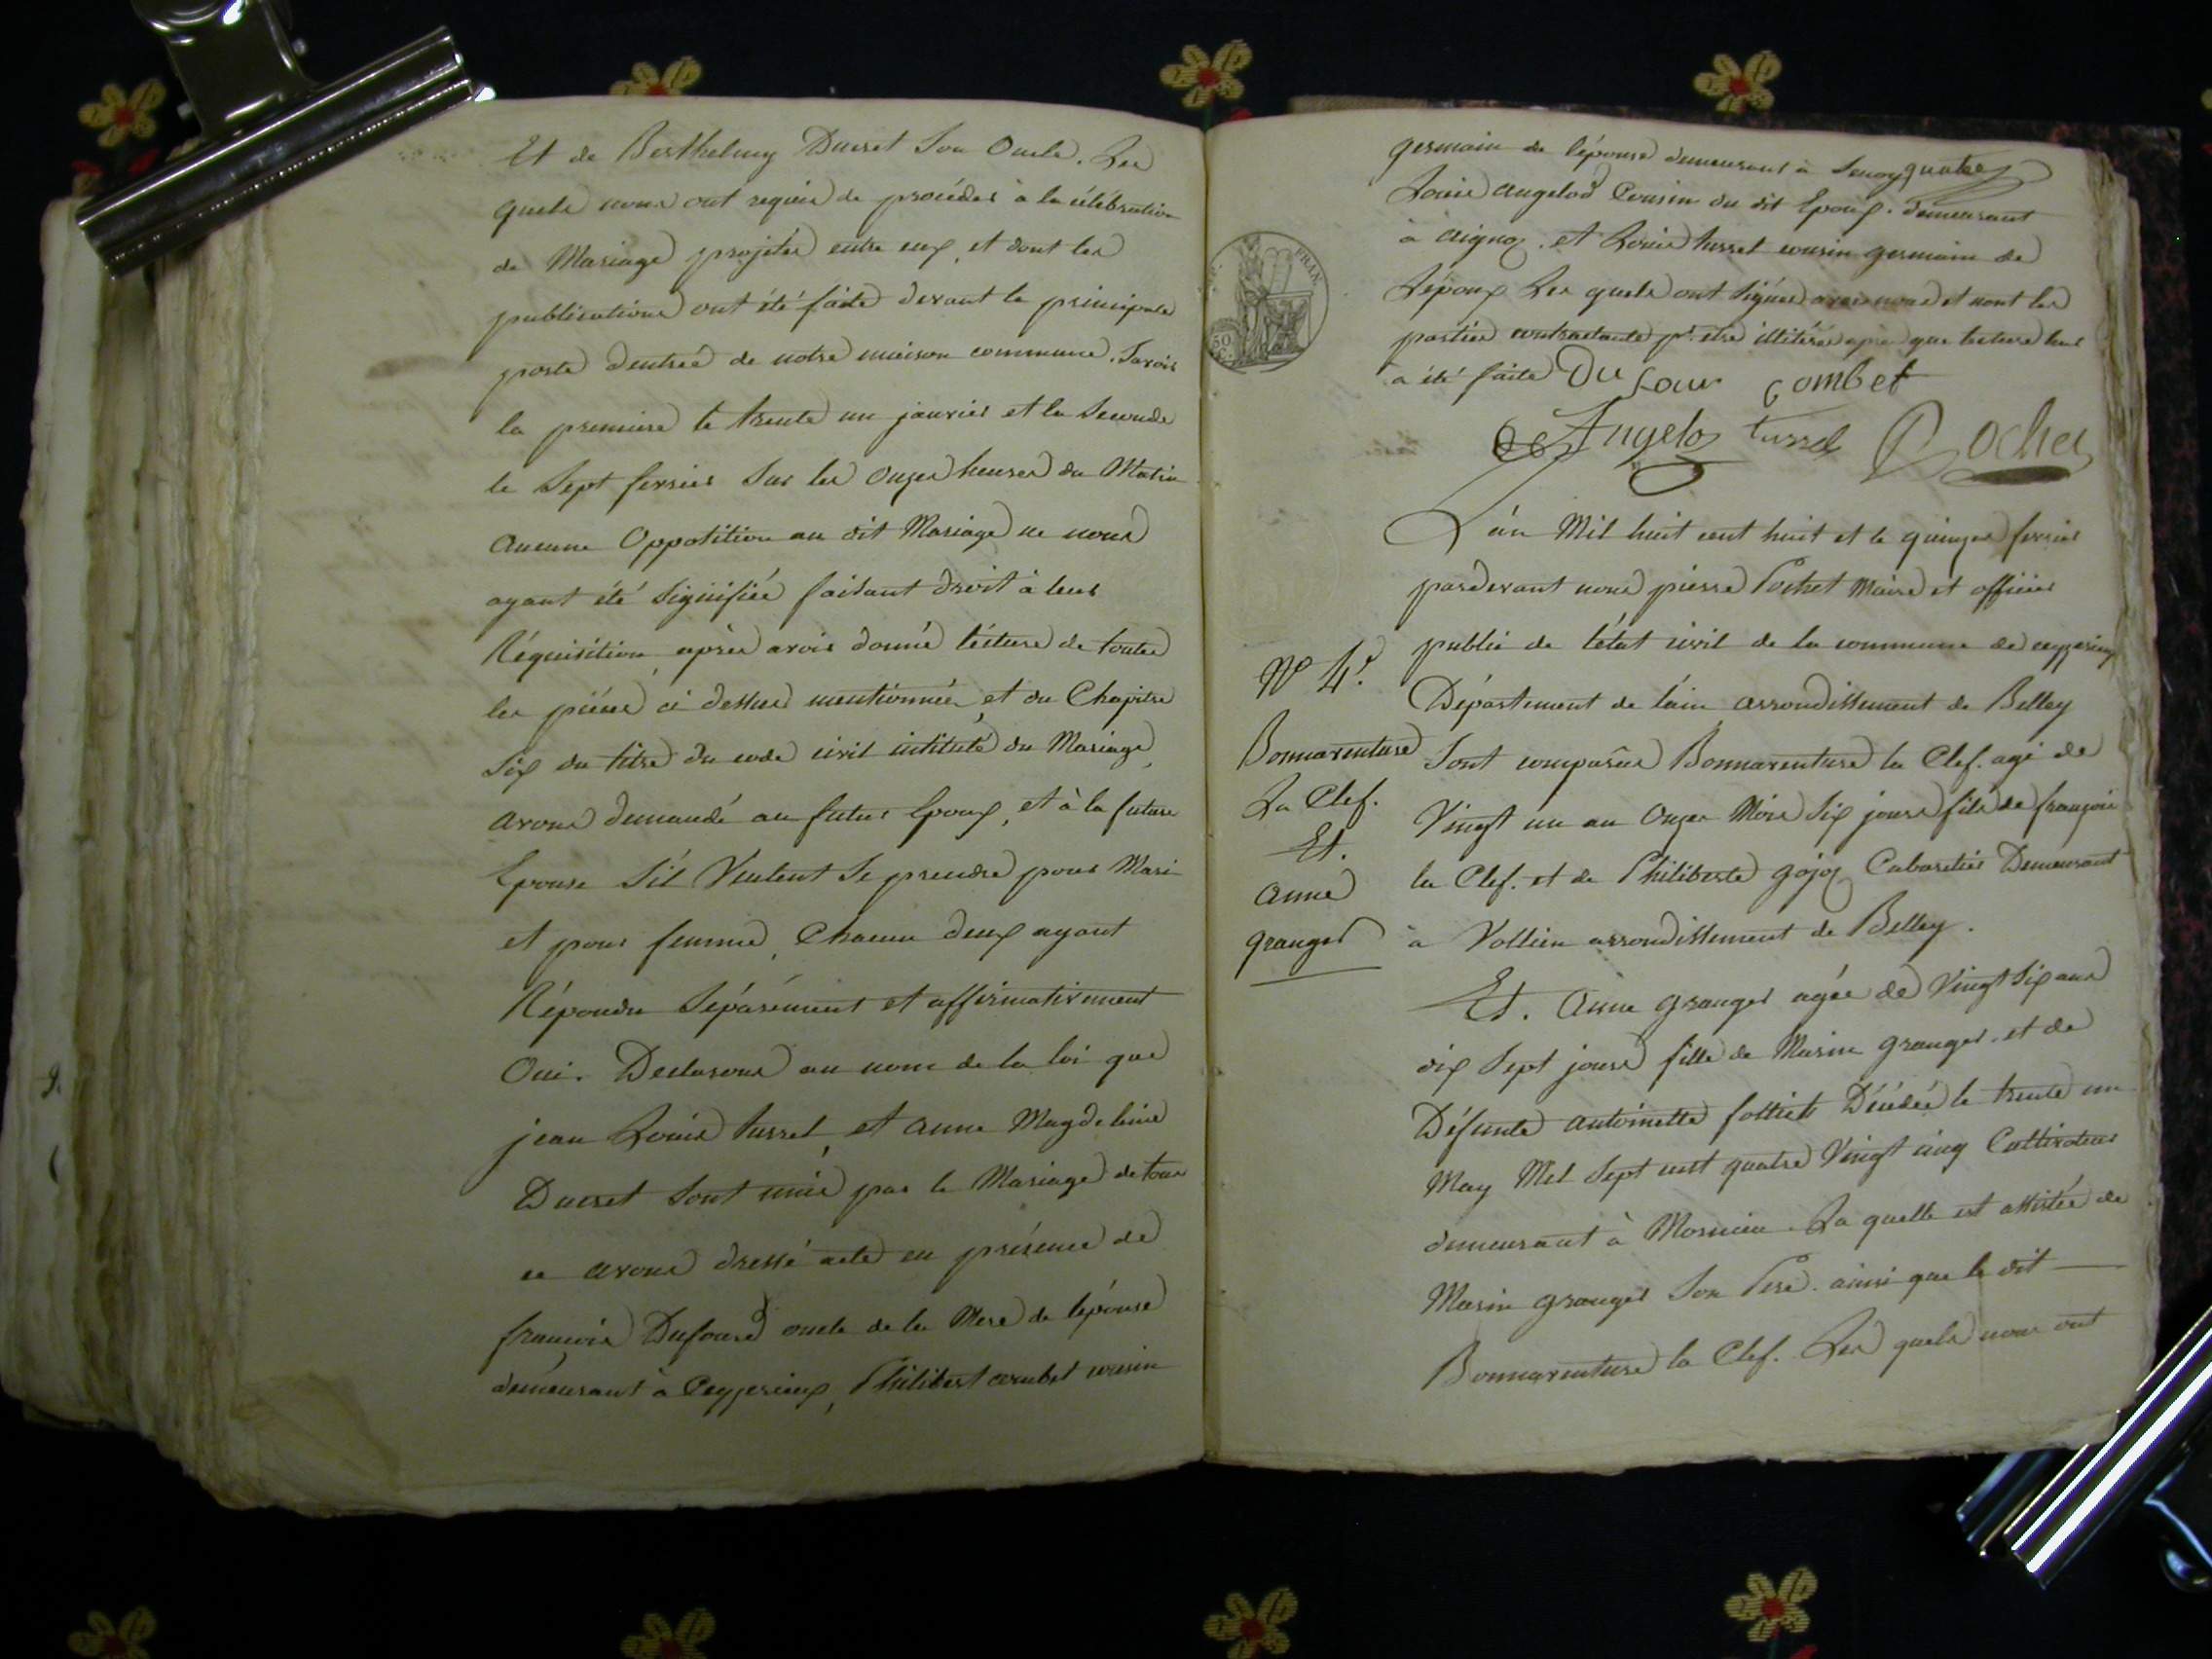 Et de Berthelmy Ducret Son Oncle. Les
quels nous ont requis de procéder à la célébration
de Mariage projetés entre eux, et dont les
publications ont été faite devant la principale
porte d'entrée de notre maison commune. Savoir
la premiere le trente un janvier et la Seconde
le Sept fevrier Sur les Onzes heures du Matin
Aucune Oppotition au dit Mariage ne nous
ayant été Signifiée faisant droit à leur
Réquisition, après avoir donné lécture de toutes
les piéces ci dessus mentionnées, et du Chapitre
Six du titre du code civil intitulé du Mariage,
avons demandé au futur Epoux, et à la future
Epouse S'il Veulent Se prendre pour Mari
et pour femme, Chacun deux ayant
Répondu Séparément et affirmativement
Oui. Declarons au nom de la loi que
jean Louis tusset, et anne Magdeleine
Ducret Sont unis par le Mariage de tous
ce avons dressé acte en présence de
françois Dufours oncle de la Mere de lépouse
démeurant à Ceyzerieux, Philibert combet cousin
germain de l'épouse demeurant à
Louis angelod Cousin du dit Epoux. demeurant
à aignoz. et Louis tusset cousin germain de
Lépoux Les quels ont Signés avec nous et nont les
parties contractante pr. etre illitérés apres que lecture leur
a été faite Dufour Combet
Angeloz tusset Pochet
L'an Mil huit cent huit et le quinzes fevrier
pardevant nous pierre Pochet Maire et officier
public de l'état civil de la commune de ceyzerieux
Département de l'ain arrondissement de Belley
Nº 4.
Bonnaventure
La Clef.
Et.
anne
granger
Sont comparûs Bonnaventure la Clef. agé de
Vingt un an Onzes Mois Six jours fils de françois
la Clef. et de Philiberte gojoz Cabaretier Demeurant
à Vollien arrondissement de Belley.
Et. Anne granger agée de Vingt Six ans
dix Sept jours fille de Marin granger. et de
Défunte antoinette Décédée le trente un
May Mil Sept cent quatre Vingt cinq Cultivateur
demeurant à Mornieu. La quelle est assistée de
Marin granger Son Pere. ainsi que le dit
Bonnaventure la Clef. Les quels nous ont